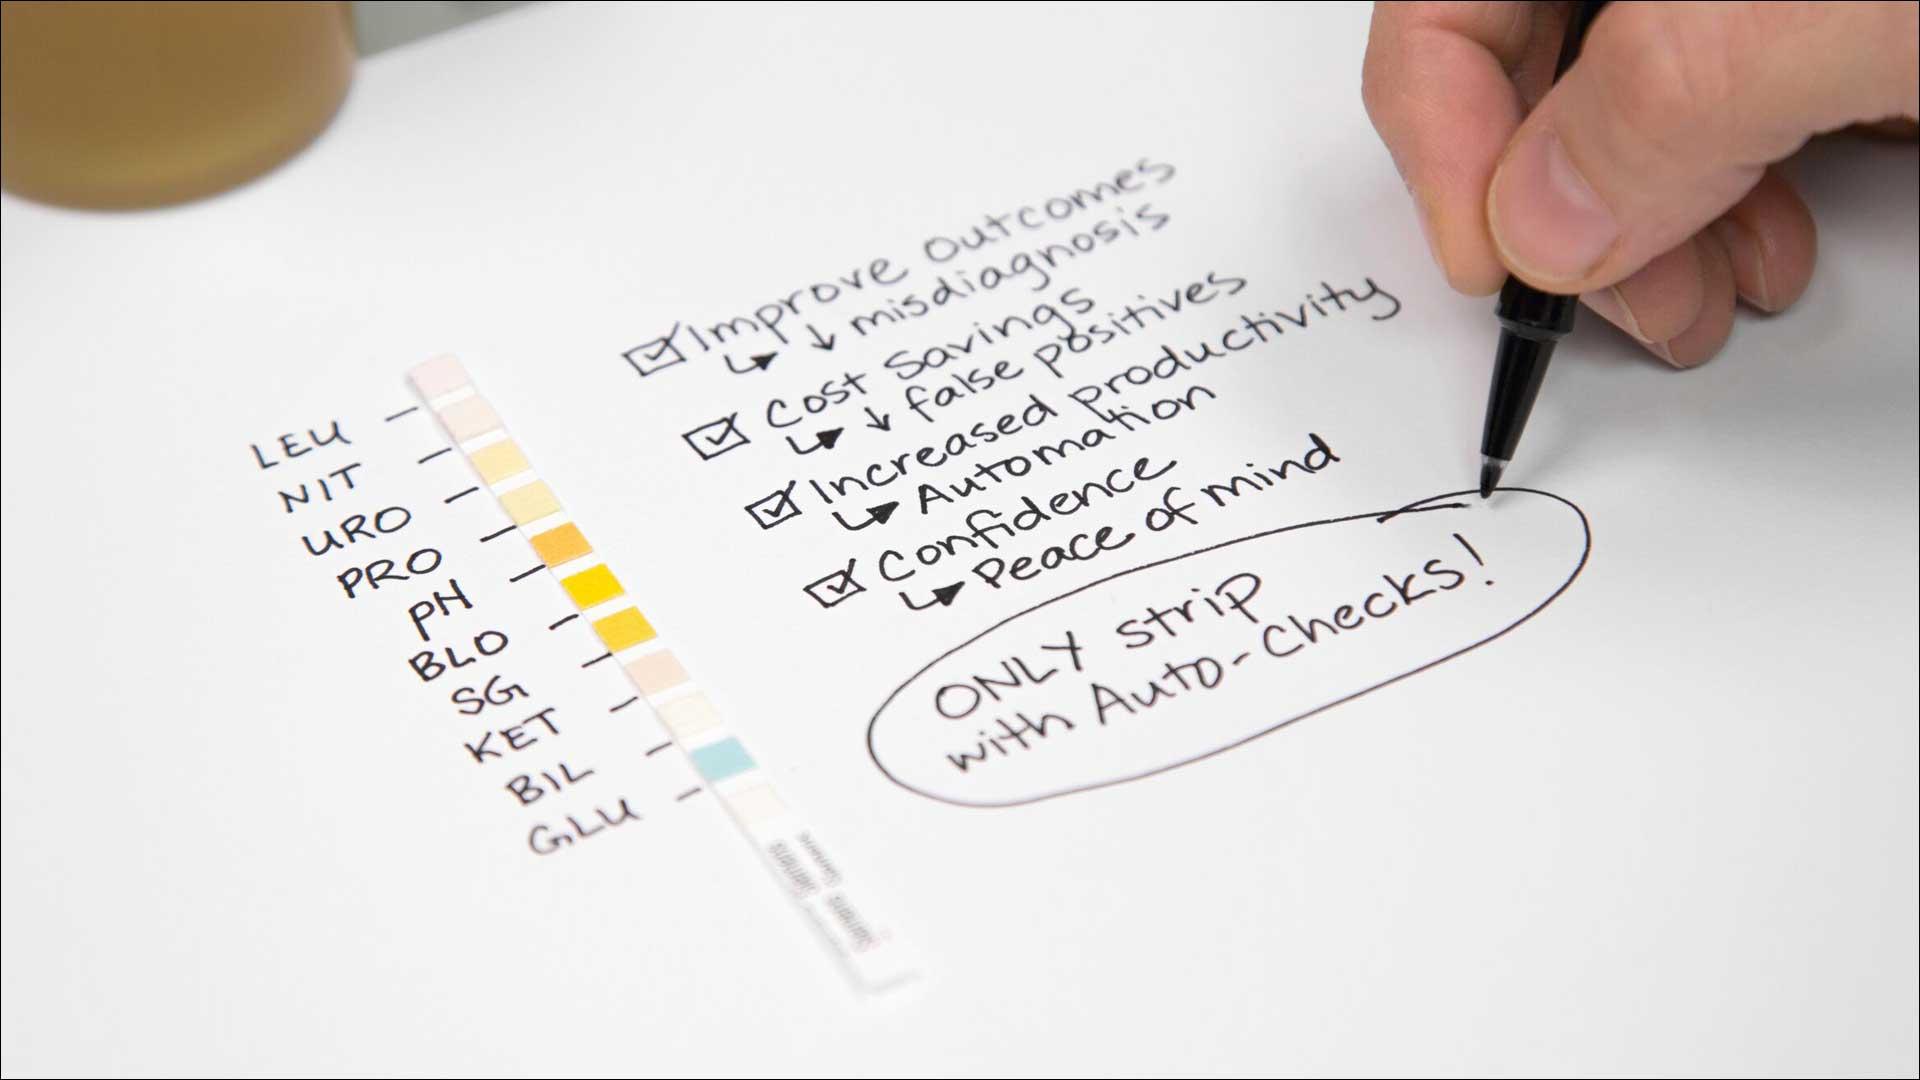 LEU
NIT
URO
PRO
PH
BLO
SG
KET
BIL
GLU
Improve outcomes
↳ ↓ misdiagnosis
Cost Savings
↳ ↓ false positives
Increased productivity
↳ Automation
Confidence
↳ Peace of mind
ONLY strip
with Auto-Checks!
Siemens Siemens Siemens
Siemens Siemens